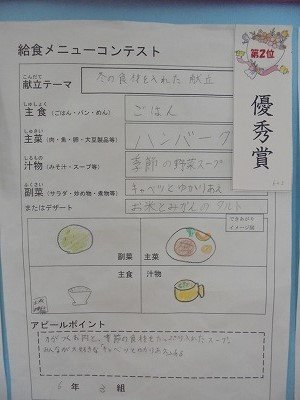 給食メニューコンテスト
第2位
優秀賞
こんだて
献立テーマ
冬の食材を入れた 献立
しゅしょく
主食(ごはん・パン・めん)
ごはん
しゅさい
主菜(肉・魚・卵・大豆製品等)
ハンバーグ
しるもの
汁物(みそ汁・スープ等)
季節の野菜スープ
ふくさい
副菜(サラダ・炒め物・煮物等)
キャベツとゆかりあえ
またはデザート
お米とみかんのタルト
できあがり
イメージ図
副菜
主菜
主食
汁物
アピールポイント
季節の食材をたっぷり入れたスープ
みんなが大好きな「キャベツとゆかりあえ」
6年
組